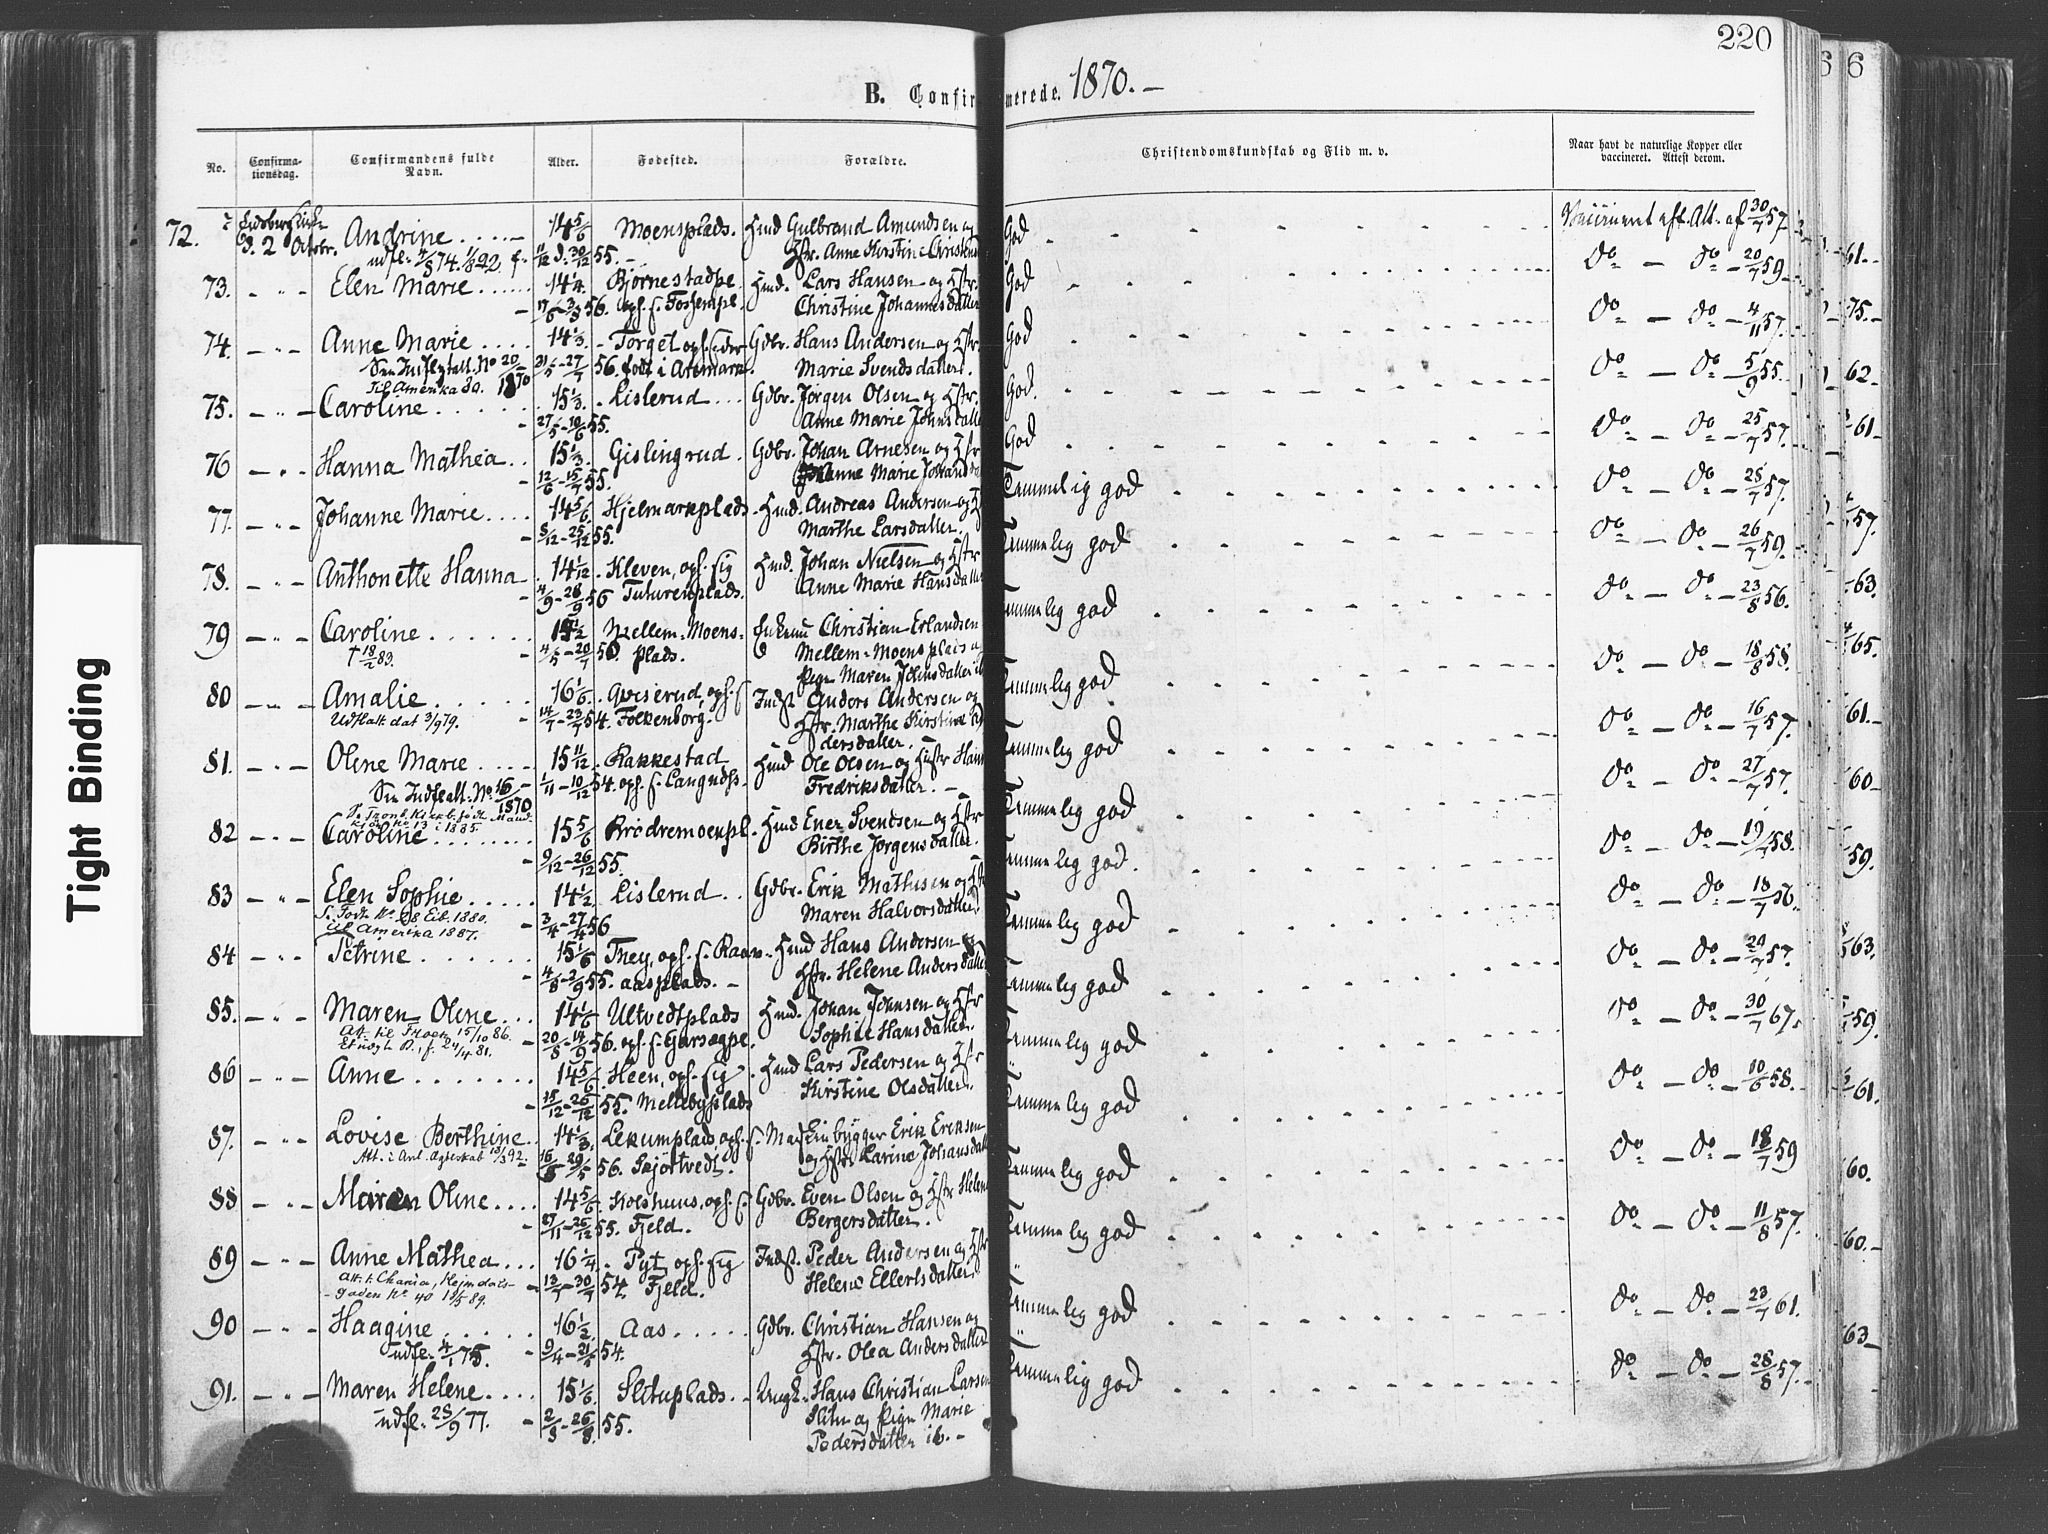 220
6 6
B. Confirmerede. 1870. –
No.
Confirma-
tionsdag.
Confirmandens fulde
Navn.
Alder.
Fødested.
Forældre.
Christendomskundskab og Flid m. v.
Naar havt de naturlige Kopper eller
vaccineret. Attest derom.
Tight Binding
72. d. 2 Octbr. Andrine 14 5/6 Moensplads. Huusmd Gulbrand Amundsen og God Vaccineret eft. Att. af 30/7 57.
udfl. 4/8 74. 11/12 d. 30/12 55. – Hstr. Anne Kirstine
73. – " – Elen Marie 14 1/4. Bjørnestadpl. Hmd. Lars Hansen og Hstr. God Do – Do – 20/7 59
17/6 – 3/8 56. oph. f. Fossempl. Christine Johannesdatter
74. – " – Anne Marie 14 1/3. Torget oph. Gdbr. Hans Andersen og Hstr. God Do – Do – 4/11 57.
Sen Indflytatt. No 20/1870 31/5 – 27/7 56. født i Aremark. Marie Svendsdatter.
Til Amerika 80.
75. – " – Caroline 15 1/3. Lislerud Gdbr. Jørgen Olsen og Hstr. God. Do – Do – 5/9 55.
27/5 – 10/6 55. Anne Marie Johnsdatter
76 – " – Hanna Mathea 15 1/3. Gislingrud. Gdbr. Johan Arnesen og Hstr God Do – Do – 25/7 57.
12/6 – 15/7 55. Johanne Marie
77. – " – Johanne Marie 14 5/6. Hjelmarkplads Hmd. Andreas Andersen og Temmelig god Do – Do – 28/7 57.
8/12 – 25/12 55. Marthe Larsdatter.
78. – " – Anthonette Hanna 14 1/12. Kleven, oph. sig Hmd. Johan Nielsen og Hstr Temmelig god Do – Do – 26/7 59.
4/9 – 28/9 56 Tuturenplads. Anne Marie Hansdatter
79 – " – Caroline Mellem-Moens- Enkemd Christian Erlandsen Temmelig god Do – Do – 23/8 56.
† 18/2 83. 4/5 – 20/7 56. plads. Mellem-Moensplads
Pige Maren Johnsdatter ib
80 – " – Amalie 16 1/6. oph. f. Indst Anders Andersen og Temmelig god Do – Do – 18/8 58.
Udflatt dat 3/9 79. 14/7 – 23/7 54. Folkenborg. Hstr. Marthe Kirstine An
dersdatter.
81. – " – Oline Marie 15 11/12. Rakkestad Hmd Ole Olsen og Hustr Temmelig god Do – Do – 16/7 57.
Sen Indflatt. No 16/1870 1/11 – 10/12 54. oph. f. Fredriksdatter. –
No 13 i 1885.
82 – " – Caroline 15 5/6 Brødremoenpl. Hmd Ener Svendsen og Hstr Temmelig god Do – Do – 27/7 57.
9/12 – 26/12 55. Birthe Jørgensdatter.
83 – " – Elen Sophie 14 1/2. Lislerud Gdbr. Erik Mathisen og Temmelig god. Do – Do – 19/7 58.
1880. 3/4 – 27/4 56 Maren Halvorsdatter.
til Amerika 1887.
84 – " – Petrine 15 1/6 oph. f. Raav- Hmd Hans Andersen og Temmelig god Do – Do – 18/7 56.
4/8 – 2/9 55. aasplads. – Hstr. Helene Andersdatter
85. – " – Maren Oline 14 1/6 Ultvedtplads Hmd. Johan Johnsen og Hstr Temmelig god Do – Do – 20/7 57.
Att. til 15/10 86. 20/8 – 14/9 56. oph. f. Sophie Hansdatter.
24/4 81.
86 – " – Anne 14 5/6. Heen, oph. sig Hmd Lars Pedersen og Hstr Temmelig god Do – Do – 30/7 67.
15/12 – 26/12 55. Mellebyplads Kirstine Olsdatter.
87. – " – Lovise Berthine 14 1/3. Lekumplads, oph. f. Erik Eriksen Temmelig god Do – Do – 10/6 58.
92. 56. Skjørtvedt. og Hstr Larine Johansdatter
88 – " – Maren Oline 14 5/6. Kolshuus, oph. f. Gdbr. Even Olsen og Hstr Helene Temmelig god Do – Do – 18/7 59
27/11 – 26/12 55. Fjeld. Bergersdatter.
89 – " – Anne Mathea 16 1/4. Pyt, oph. sig Indst. Peder Andersen og Hstr Temmelig god Do – Do – 11/8 57.
Att. t. Chania, Hejmdals- 13/7 – 30/7 54. Fjeld. Helene Ellertsdatter.
gaden No 40 89.
90 – " – Haagine 16 1/2. Aas Gdbr. Christian Hansen og Temmelig god Do – Do – 23/7 61.
udfl. 4/1 75. 9/4 54. Hstr. Olea Andersdatter
91. – " – Maren Helene 15 1/6. Slituplads. Ungk. Hans Christian Larsen Temmelig god Do – Do – 28/8 57.
udfl. 28/9 77. 2/8 – 26/8 55. Slitu og Pige Marie
Pedersdatter ib. –
61.
75.
62
61
57.
63.
65.
61.
60
59.
63.
59.
61.
60.
60.
63